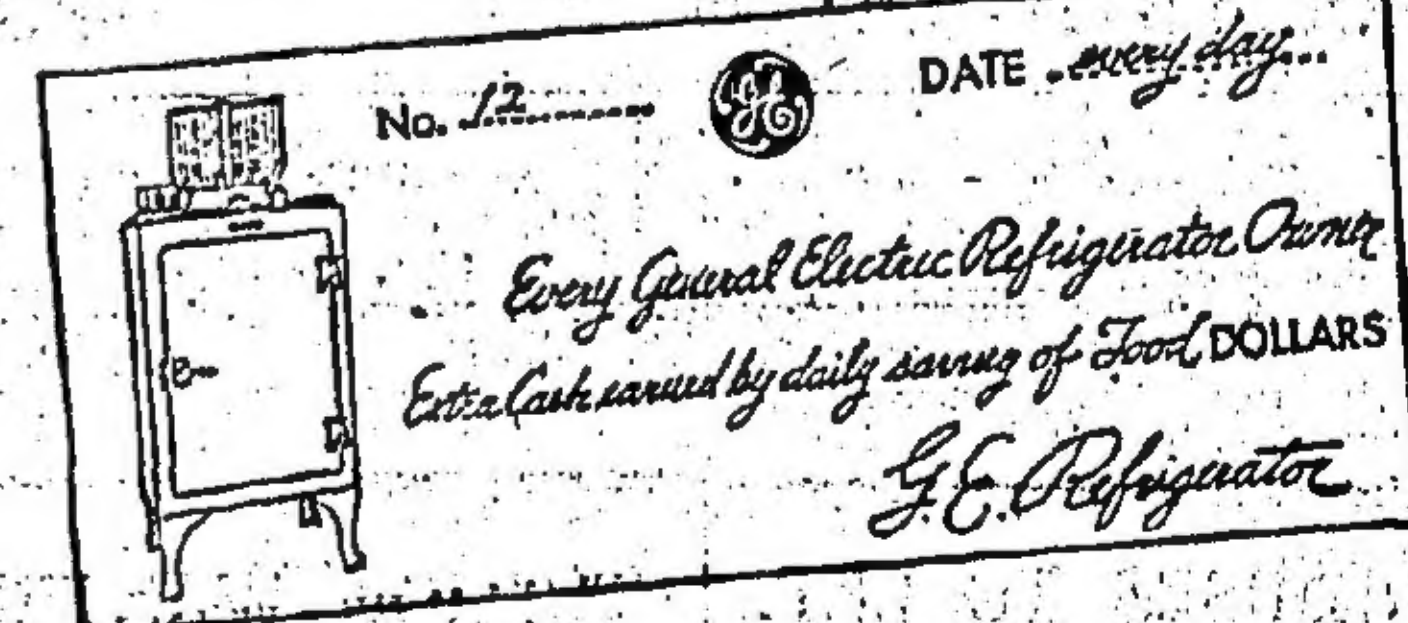 No. 12 GE DATE every day
Every General Electric Refrigerator Owner
Extra Cash earned by daily saving of Food DOLLARS
G.E. Refrigerator